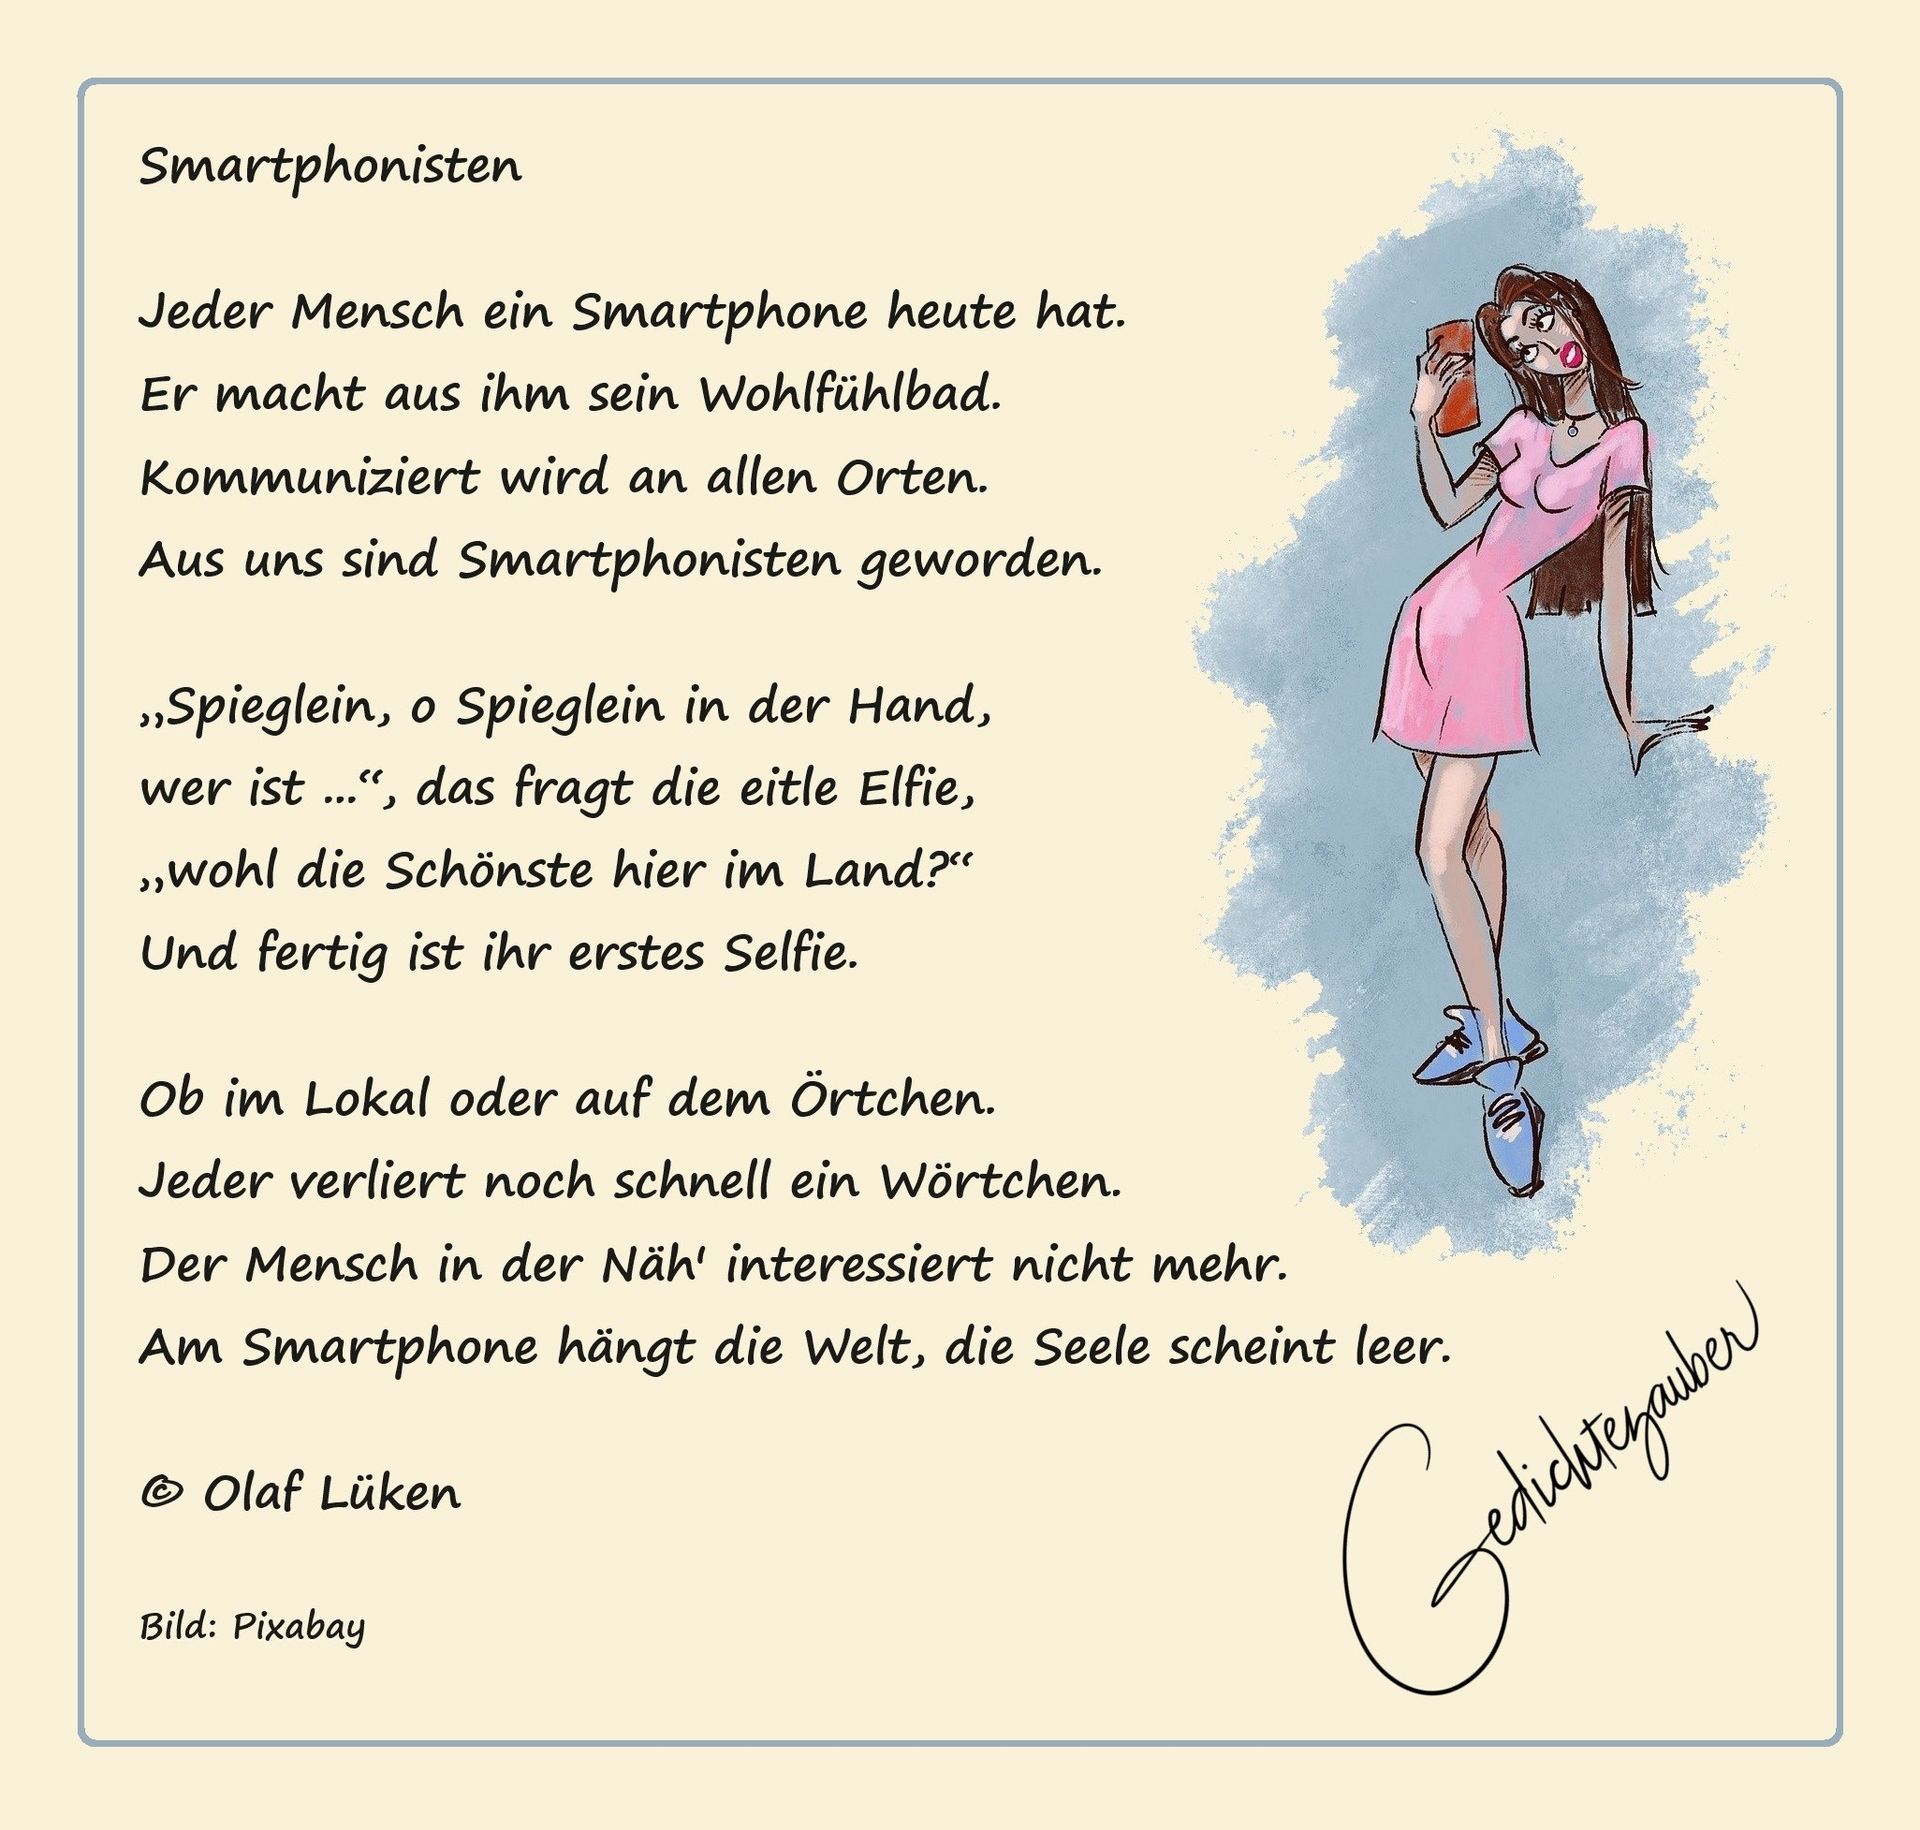 Smartphonisten
Jeder Mensch ein Smartphone heute hat.
Er macht aus ihm sein Wohlfühlbad.
Kommuniziert wird an allen Orten.
Aus uns sind Smartphonisten geworden.
„Spieglein, o Spieglein in der Hand,
wer ist ...“, das fragt die eitle Elfie,
„wohl die Schönste hier im Land?“
Und fertig ist ihr erstes Selfie.
Ob im Lokal oder auf dem Örtchen.
Jeder verliert noch schnell ein Wörtchen.
Der Mensch in der Näh' interessiert nicht mehr.
Am Smartphone hängt die Welt, die Seele scheint leer.
© Olaf Lüken
Bild: Pixabay
Gedichtezauber